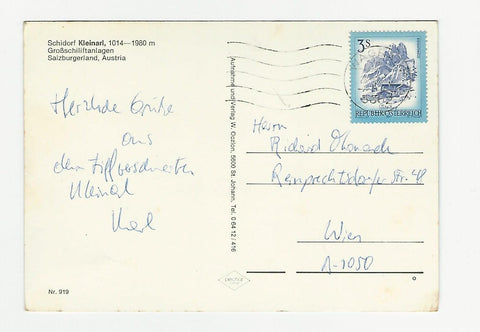 Schidorf Kleinarl, 1014—1980 m
Großschiliftanlagen
Salzburgerland, Austria
Herzliche Grüße
aus
dem tiefverschneiten
Kleinarl
Karl
Nr. 919
Aufnahme und Verlag W. Oczlon, 5600 St. Johann, Tel. 0 64 12 / 416
3 S
REPUBLIK ÖSTERREICH
Herrn
Richard
Reinprechtsdorfer Str. 48
Wien
A-1050